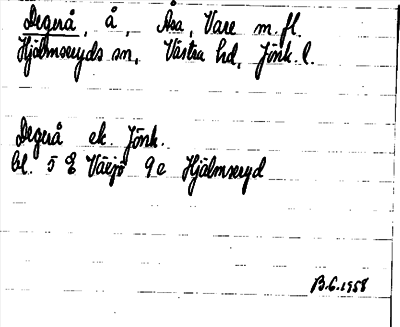 Degerå, å, Åsa, Vare m.fl.
Hjälmseryds sn, Västra hd, Jönk. l.
Degerå ek. Jönk.
bl. 5 E Växjö 9 e Hjälmseryd
B.G. 1958